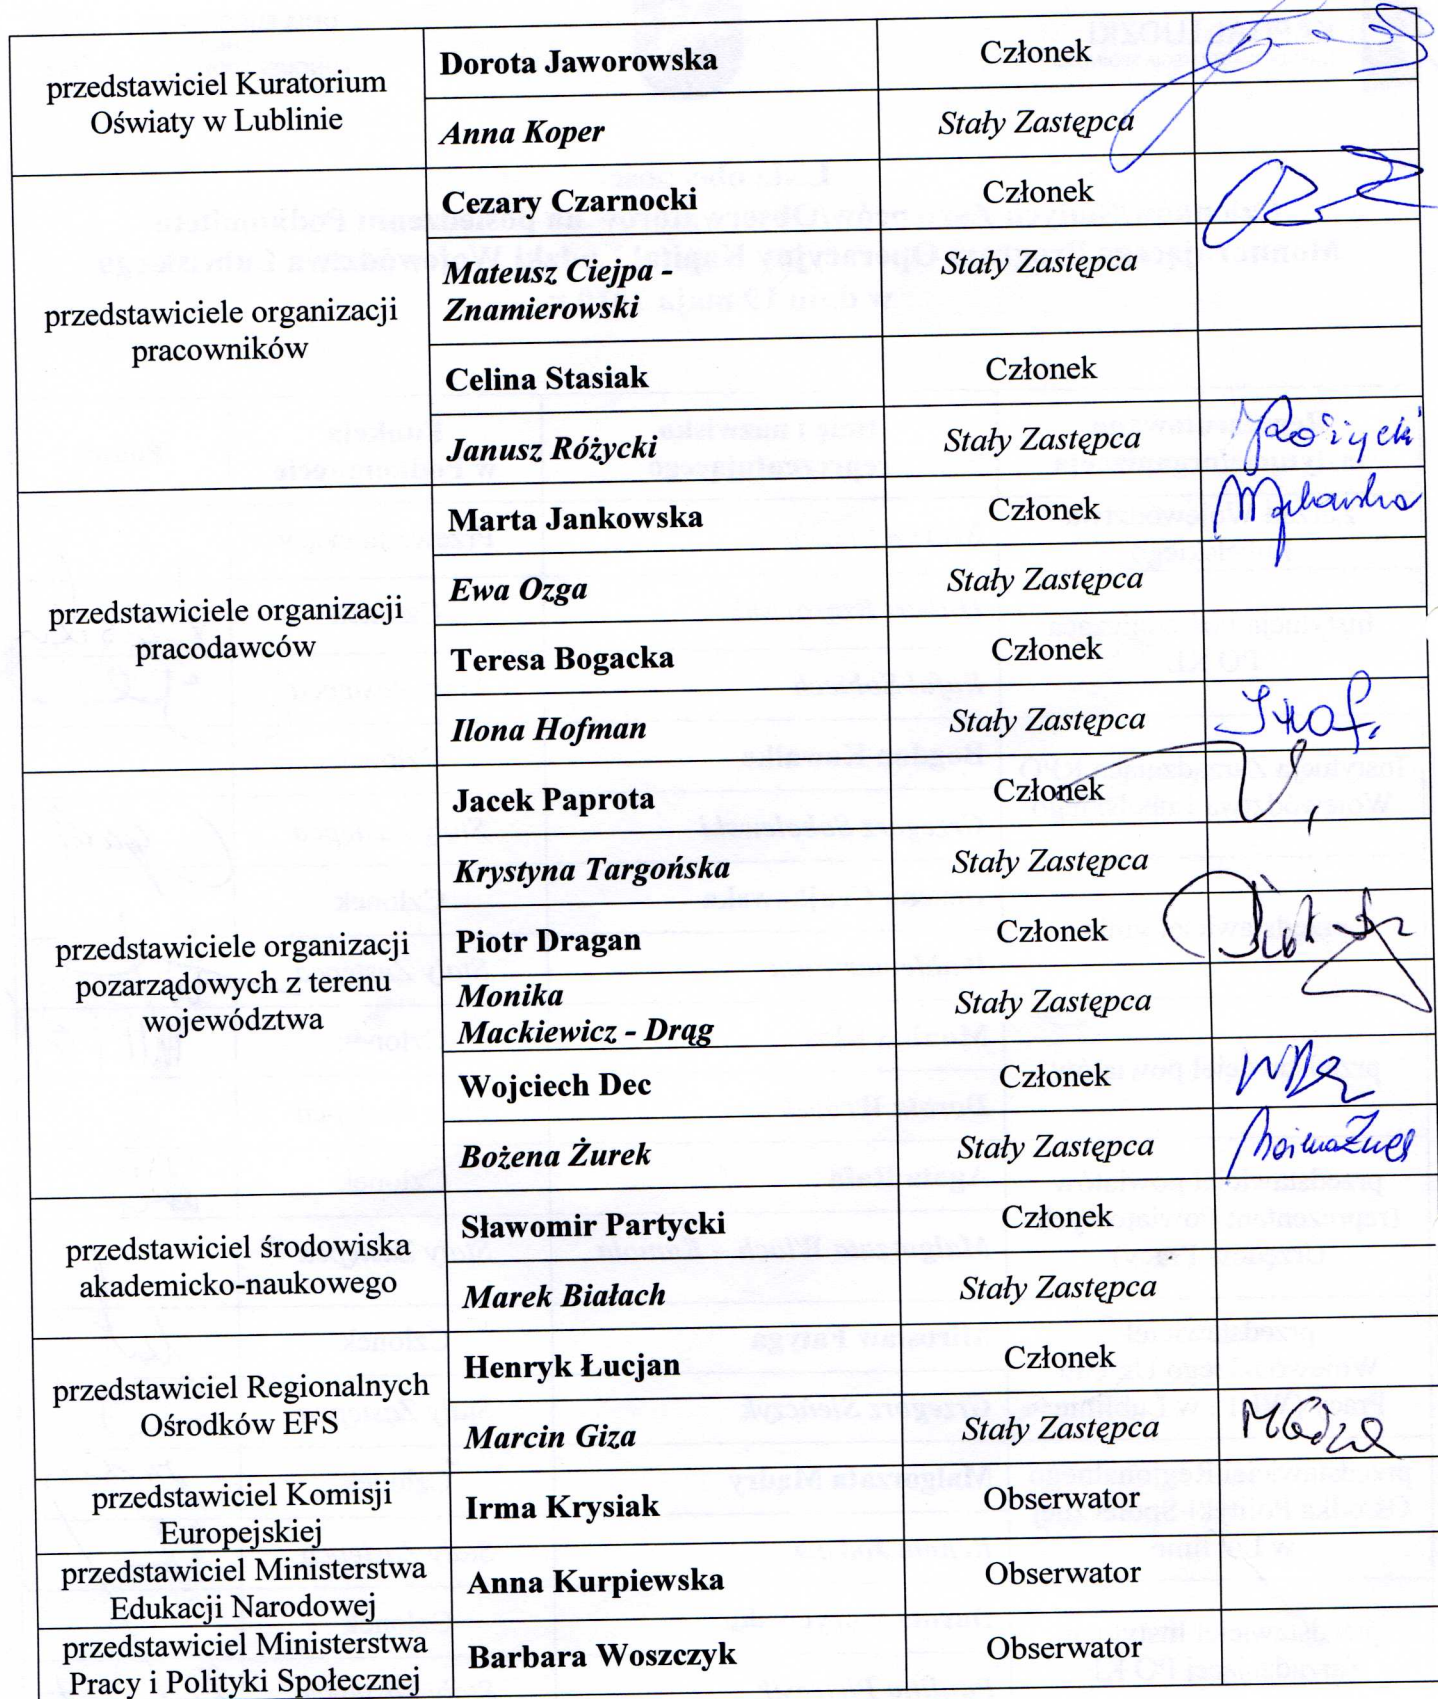 przedstawiciel Kuratorium
Oświaty w Lublinie
Dorota Jaworowska
Członek
Anna Koper
Stały Zastępca
przedstawiciele organizacji
pracowników
Cezary Czarnocki
Członek
Mateusz Ciejpa -
Znamierowski
Stały Zastępca
Celina Stasiak
Członek
Janusz Różycki
Stały Zastępca
JRóżycki
przedstawiciele organizacji
pracodawców
Marta Jankowska
Członek
Ewa Ozga
Stały Zastępca
Teresa Bogacka
Członek
Ilona Hofman
Stały Zastępca
IHof.
przedstawiciele organizacji
pozarządowych z terenu
województwa
Jacek Paprota
Członek
Krystyna Targońska
Stały Zastępca
Piotr Dragan
Członek
Monika
Mackiewicz - Drąg
Stały Zastępca
Wojciech Dec
Członek
Bożena Żurek
Stały Zastępca
przedstawiciel środowiska
akademicko-naukowego
Sławomir Partycki
Członek
Marek Białach
Stały Zastępca
przedstawiciel Regionalnych
Ośrodków EFS
Henryk Łucjan
Członek
Marcin Giza
Stały Zastępca
przedstawiciel Komisji
Europejskiej
Irma Krysiak
Obserwator
przedstawiciel Ministerstwa
Edukacji Narodowej
Anna Kurpiewska
Obserwator
przedstawiciel Ministerstwa
Pracy i Polityki Społecznej
Barbara Woszczyk
Obserwator